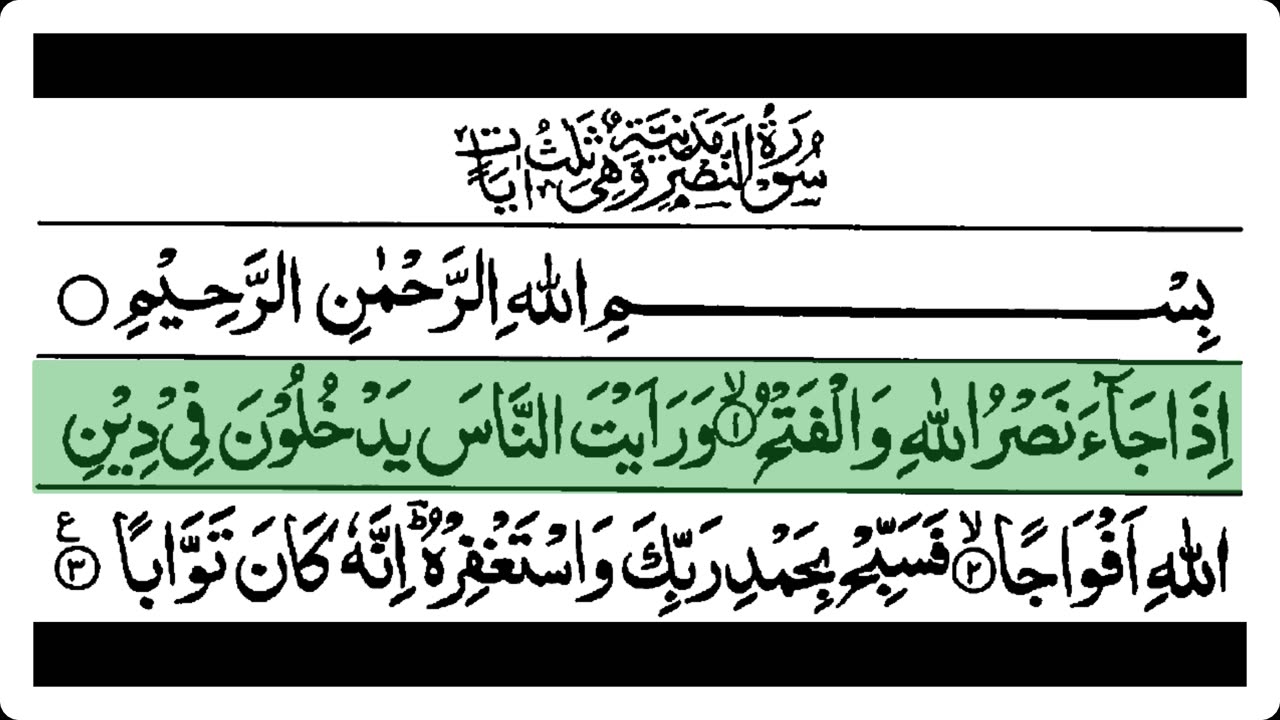 سُوْرَةُ النَّصْرِ مَدَنِيَّةٌ وَّهِىَ ثَلٰثُ اٰيَاتٍ
بِسْمِ اللهِ الرَّحْمٰنِ الرَّحِيْمِ ○
اِذَا جَآءَ نَصْرُ اللهِ وَالْفَتْحُ ۙ﴿۱﴾ وَرَاَيْتَ النَّاسَ يَدْخُلُوْنَ فِىْ دِيْنِ
اللهِ اَفْوَاجًا ۙ﴿۲﴾ فَسَبِّحْ بِحَمْدِ رَبِّكَ وَاسْتَغْفِرْهُ ؕ اِنَّهٗ كَانَ تَوَّابًا ﴿۳﴾ ع